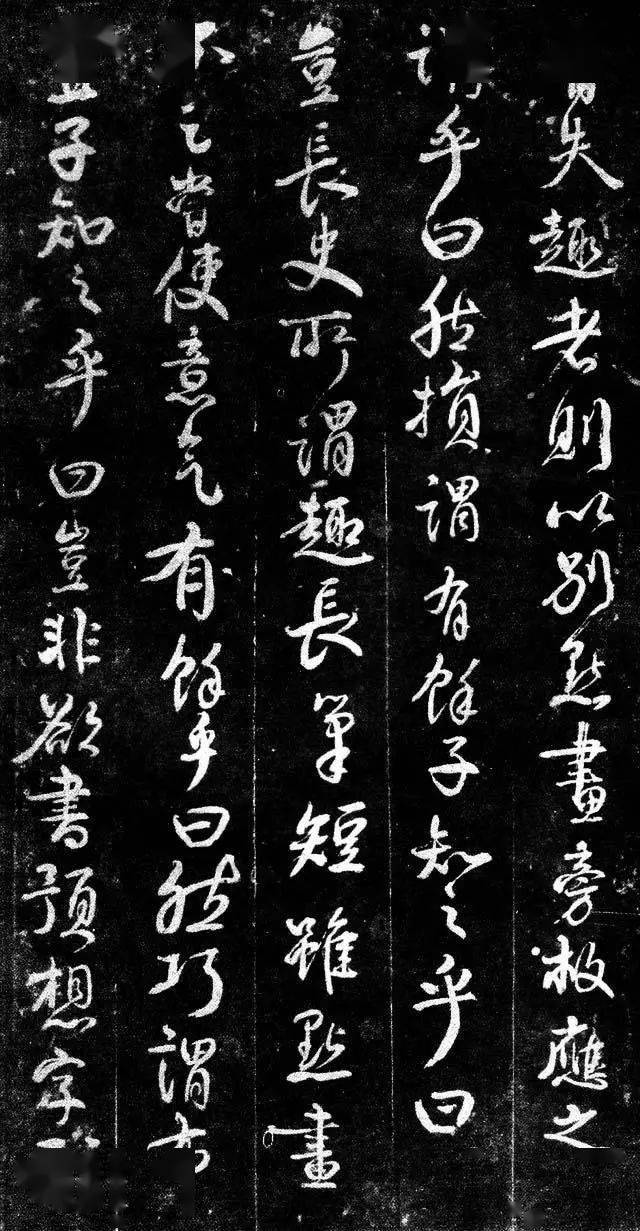 失趣者則以別點畫旁救應之
謂乎曰然損謂有餘子知之乎曰
豈長史所謂趣長筆短雖點畫
不足常使意氣有餘乎曰然巧謂布
置子知之乎曰豈非欲書預想字